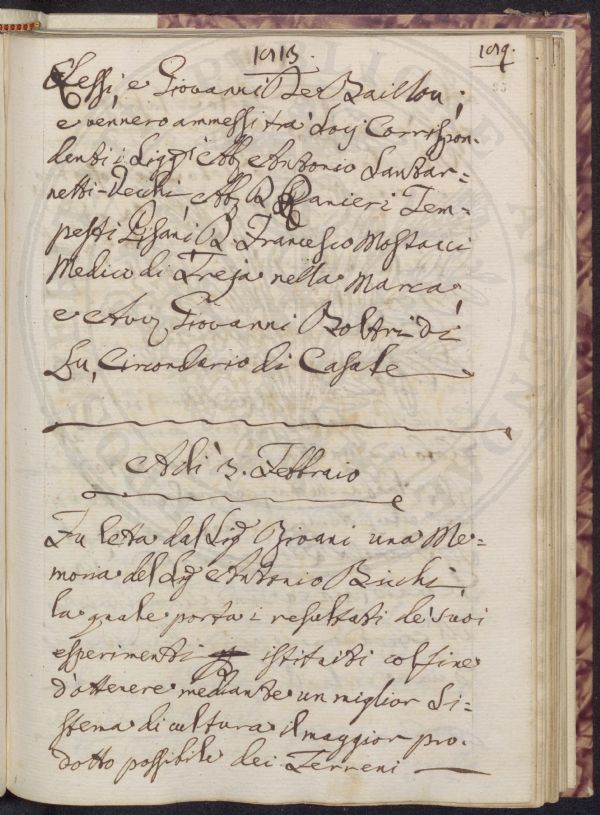 1813.
109.
Tessi, e Giovanni De Baillou;
e vennero ammessi trà Socj Corrispon-
denti i Sigg.i Ab. Antonio Santar=
netti-Vecchi, Ab. D. Ranieri Tem-
pesti Pisani D. Francesco Mostacci
Medico di Treja nella Marca,
e Avv. Giovanni Boltri di
Lu, Circondario di Casale
Adì 3. Febbraio
Fu letta dal Sig. Giovani una Me=
moria del Sig. Antonio Bicchi,
la quale porta i resultati de' suoi
esperimenti istituiti col fine
d'ottenere mediante un miglior Si=
stema di cultura il maggior pro-
dotto possibile dei Terreni